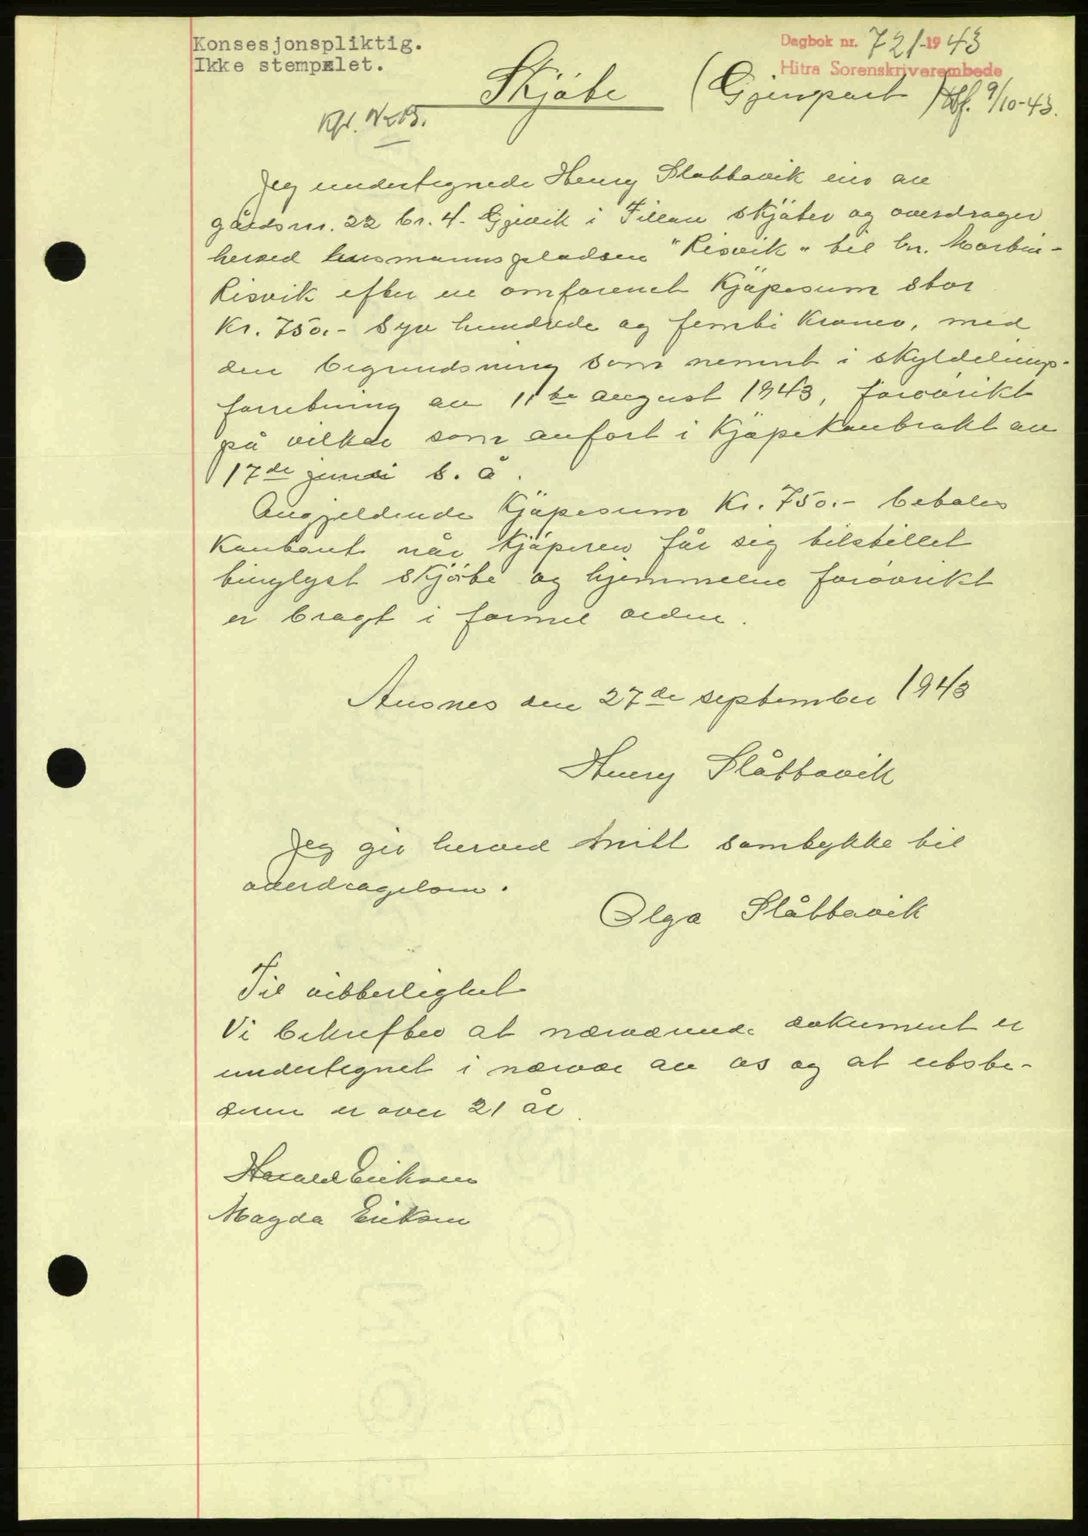 Konsesjonspliktig.
Ikke stempxlet.
Dagbok nr. 721-1943
Hitra Sorenskriverembede
Skjöte (Gjenpart)
9/10-43.
Jeg undertegnede Henry Slåttavik eier av
gårdsnr. 22 br. 4. Gjevik i Fillan skjöter og overdrager
herved husmannspladsen "Risvik" til hr. Martin
Risvik efter en omforenet Kjöpesum stor
Kr. 750.- syv hundrede og femti Kroner, med
den begrensning som nemnt i skyldelings-
forretning av 11te august 1943, forövrikt
på vilkår som anfört i Kjöpekontrakt av
17de juni s. å.
Angjeldende Kjöpesum Kr. 750.- betales
Kontant når Kjöperen får sig tilstillet
tinglyst skjöte og hjemmelen forövrikt
er bragt i formel orden.
Ansnes den 27de september 1943
Henry Slåttavik
Jeg gir herved mitt samtykke til
overdragelsen.
Olga Slåttavik
Til vitterlighet
Vi bekrefter at nærværende dokument er
undertegnet i nærvær av os og at utste-
deren er over 21 år.
Harald Eriksen
Magda Eriksen